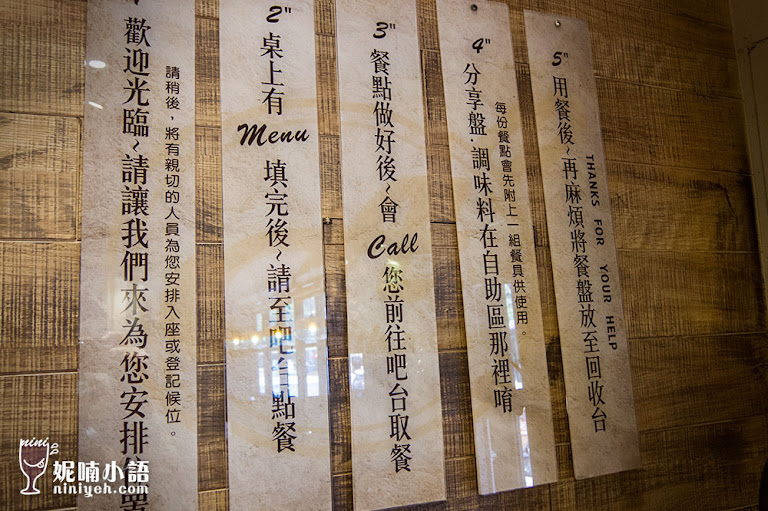 歡迎光臨~請讓我們來為您安排
請稍後，將有親切的人員為您安排入座或登記候位。
2"
桌上有
Menu
填完後~請至吧台點餐
3"
餐點做好後~會
Call
您前往吧台取餐
4"
分享盤．調味料在自助區那裡唷
每份餐點會先附上一組餐具供使用。
5"
用餐後~再麻煩將餐盤放至回收台
THANKS FOR YOUR HELP
nini
妮喃小語
niniyeh.com